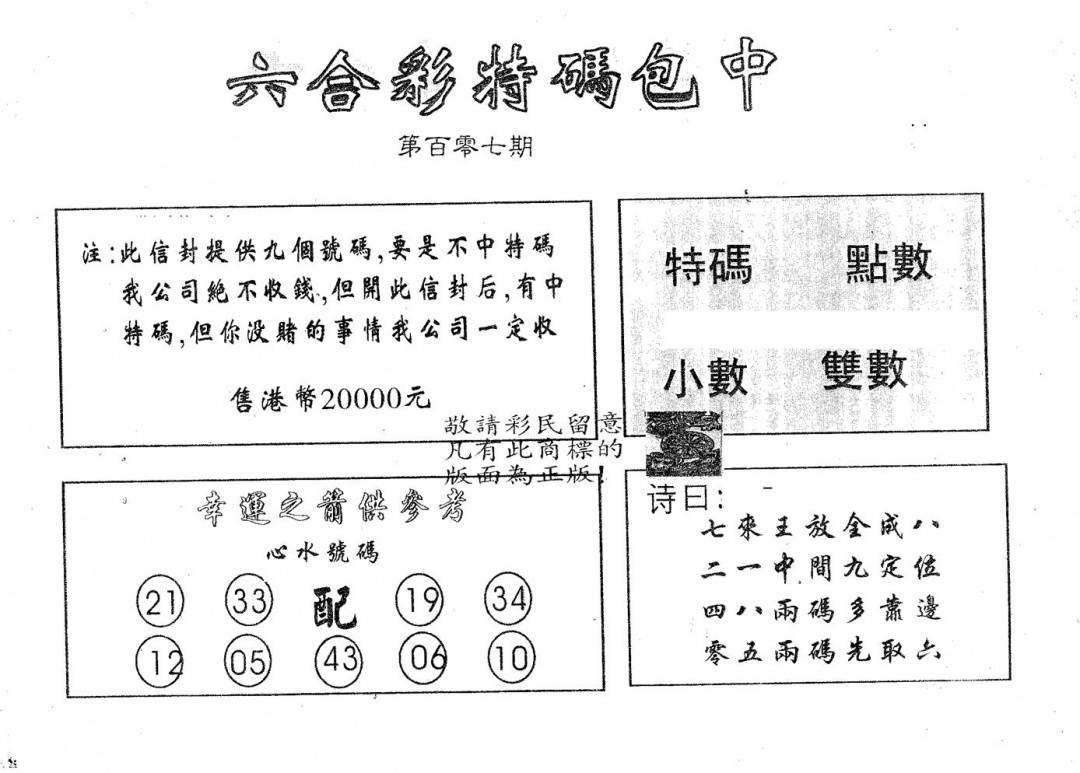 六合彩特碼包中
第百零七期
注:此信封提供九個號碼,要是不中特碼
我公司絕不收錢,但開此信封后,有中
特碼,但你没賭的事情我公司一定收
售港幣20000元
特碼 點數
小數 雙數
敬請彩民留意
凡有此商標的
版面為正版!
幸運之箭供參考
心水號碼
21 33 配 19 34
12 05 43 06 10
诗曰:
七來王放全成八
二一中間九定位
四八兩碼多靠邊
零五兩碼先取六